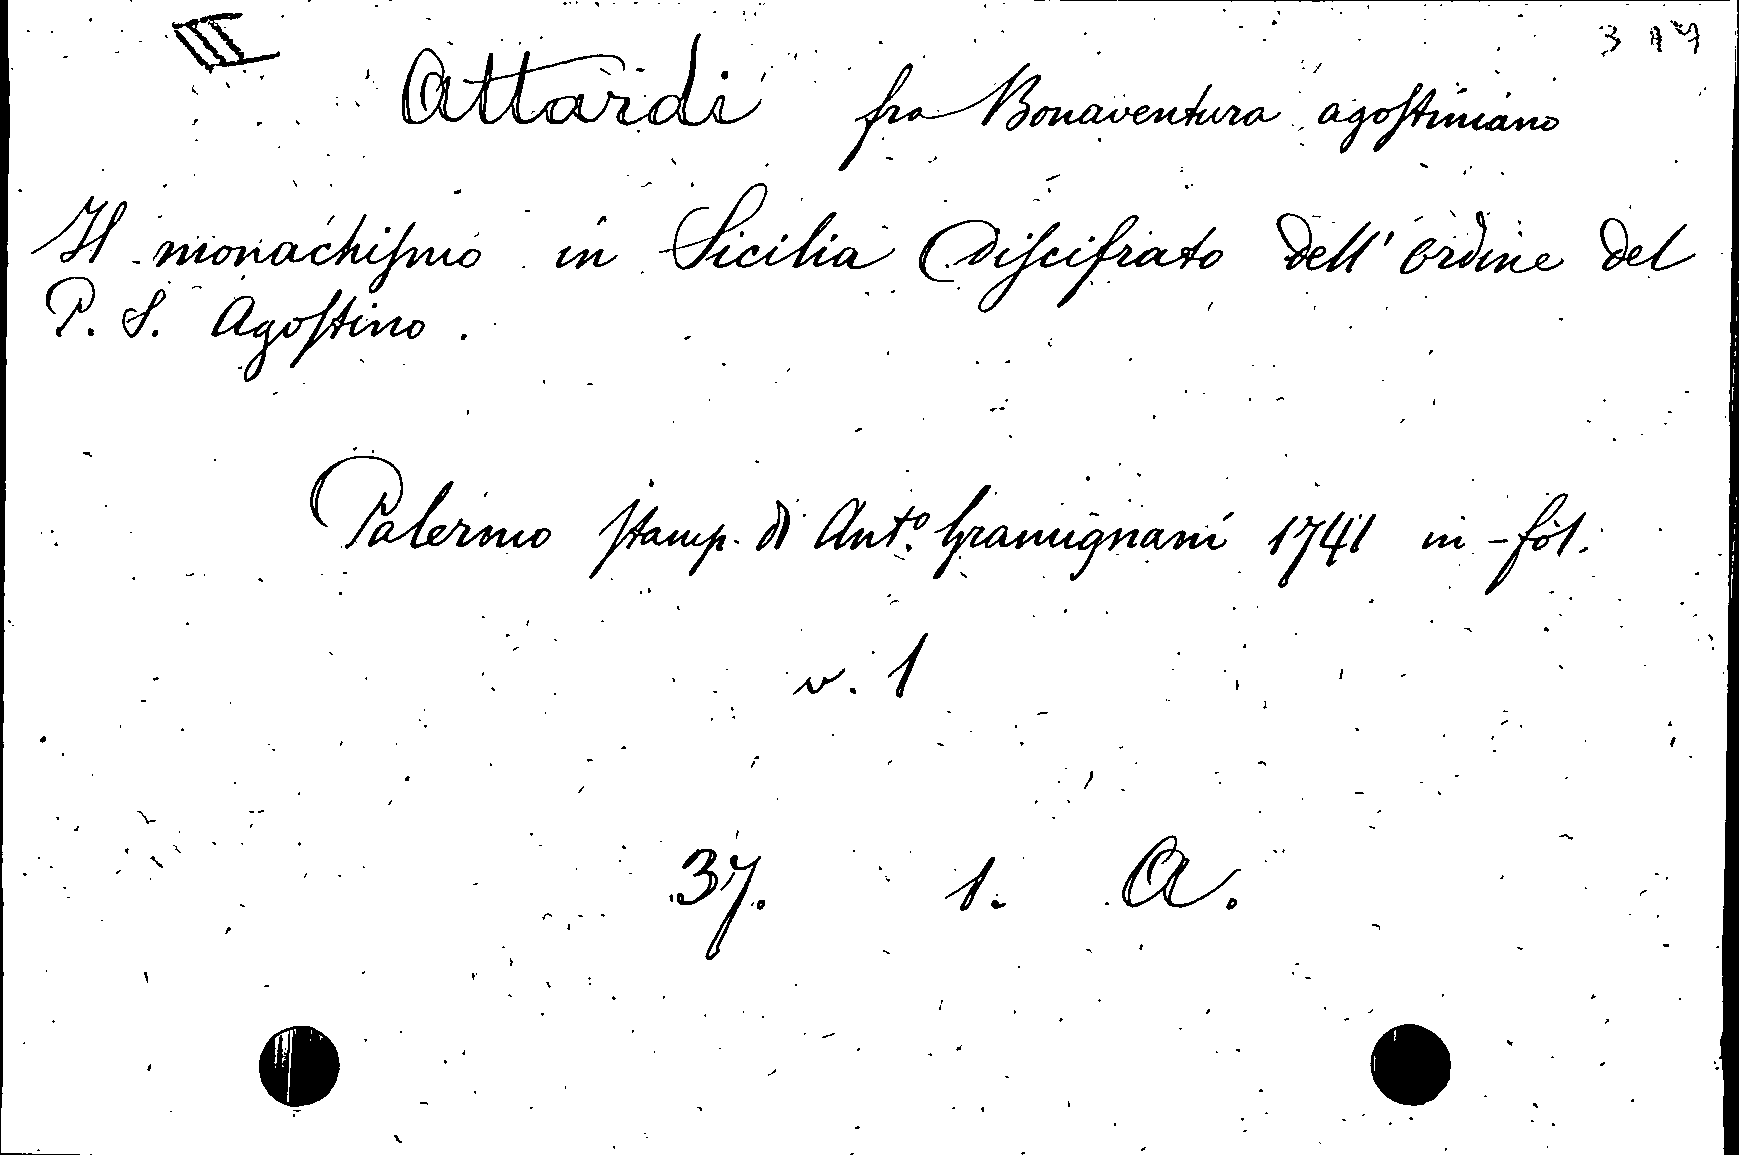 III
Attardi fra Bonaventura agostiniano
Il monachismo in Sicilia discifrato dell'ordine del
P. S. Agostino.
Palermo stamp. di Ant.º Gramignani 1741 in-fol.
v. 1
37. 1. A.